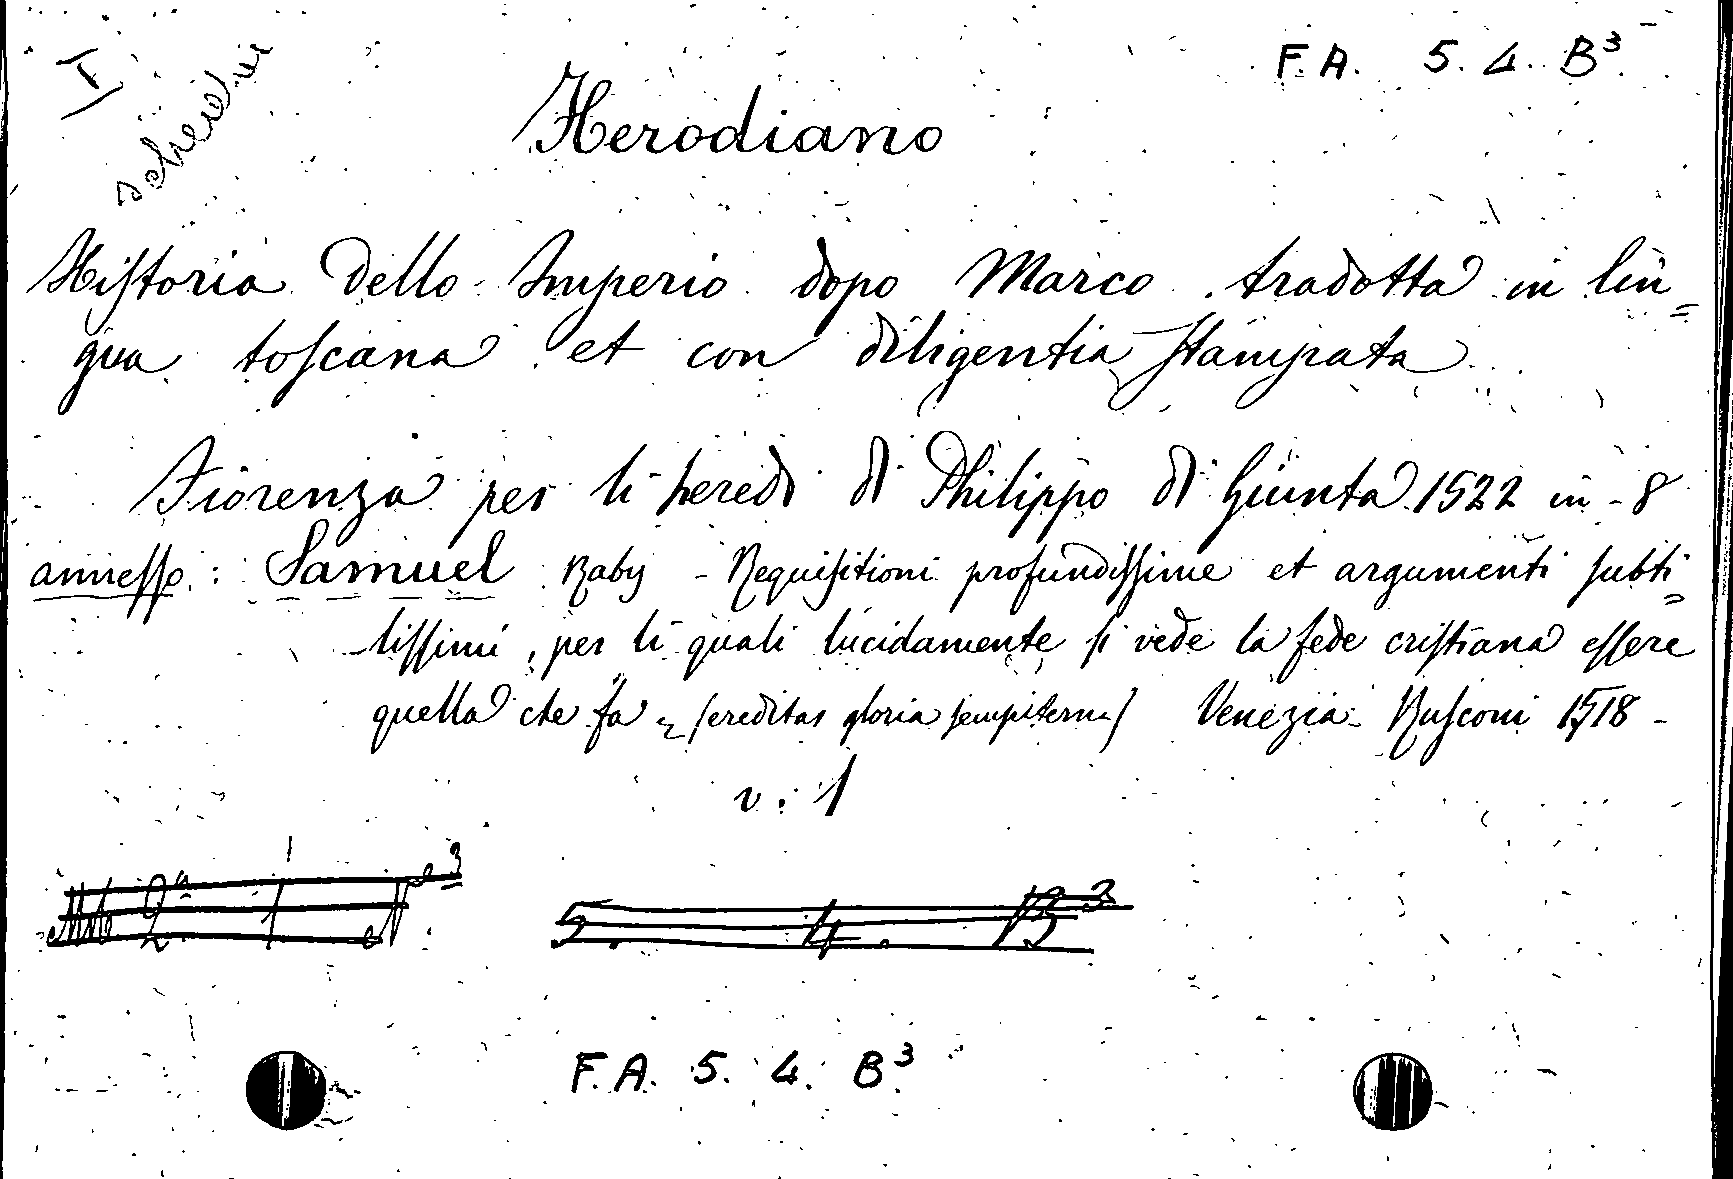 I
schedui
F. A. 5. 4. B³
Herodiano
Historia dello Imperio dopo Marco tradotta in lin=
gua toscana et con diligentia stampata
Fiorenza per li heredi di Philippo di Giunta 1522 in-8
annesso: Samuel Raby - Requisitioni profundissime et argumenti subti=
lissimi, per li quali lucidamente si vede la fede cristiana essere
quella che fa = (ereditas gloria sempiterna) Venezia Rusconi 1518 -
v. 1
5. 4. B³
F. A. 5. 4. B³